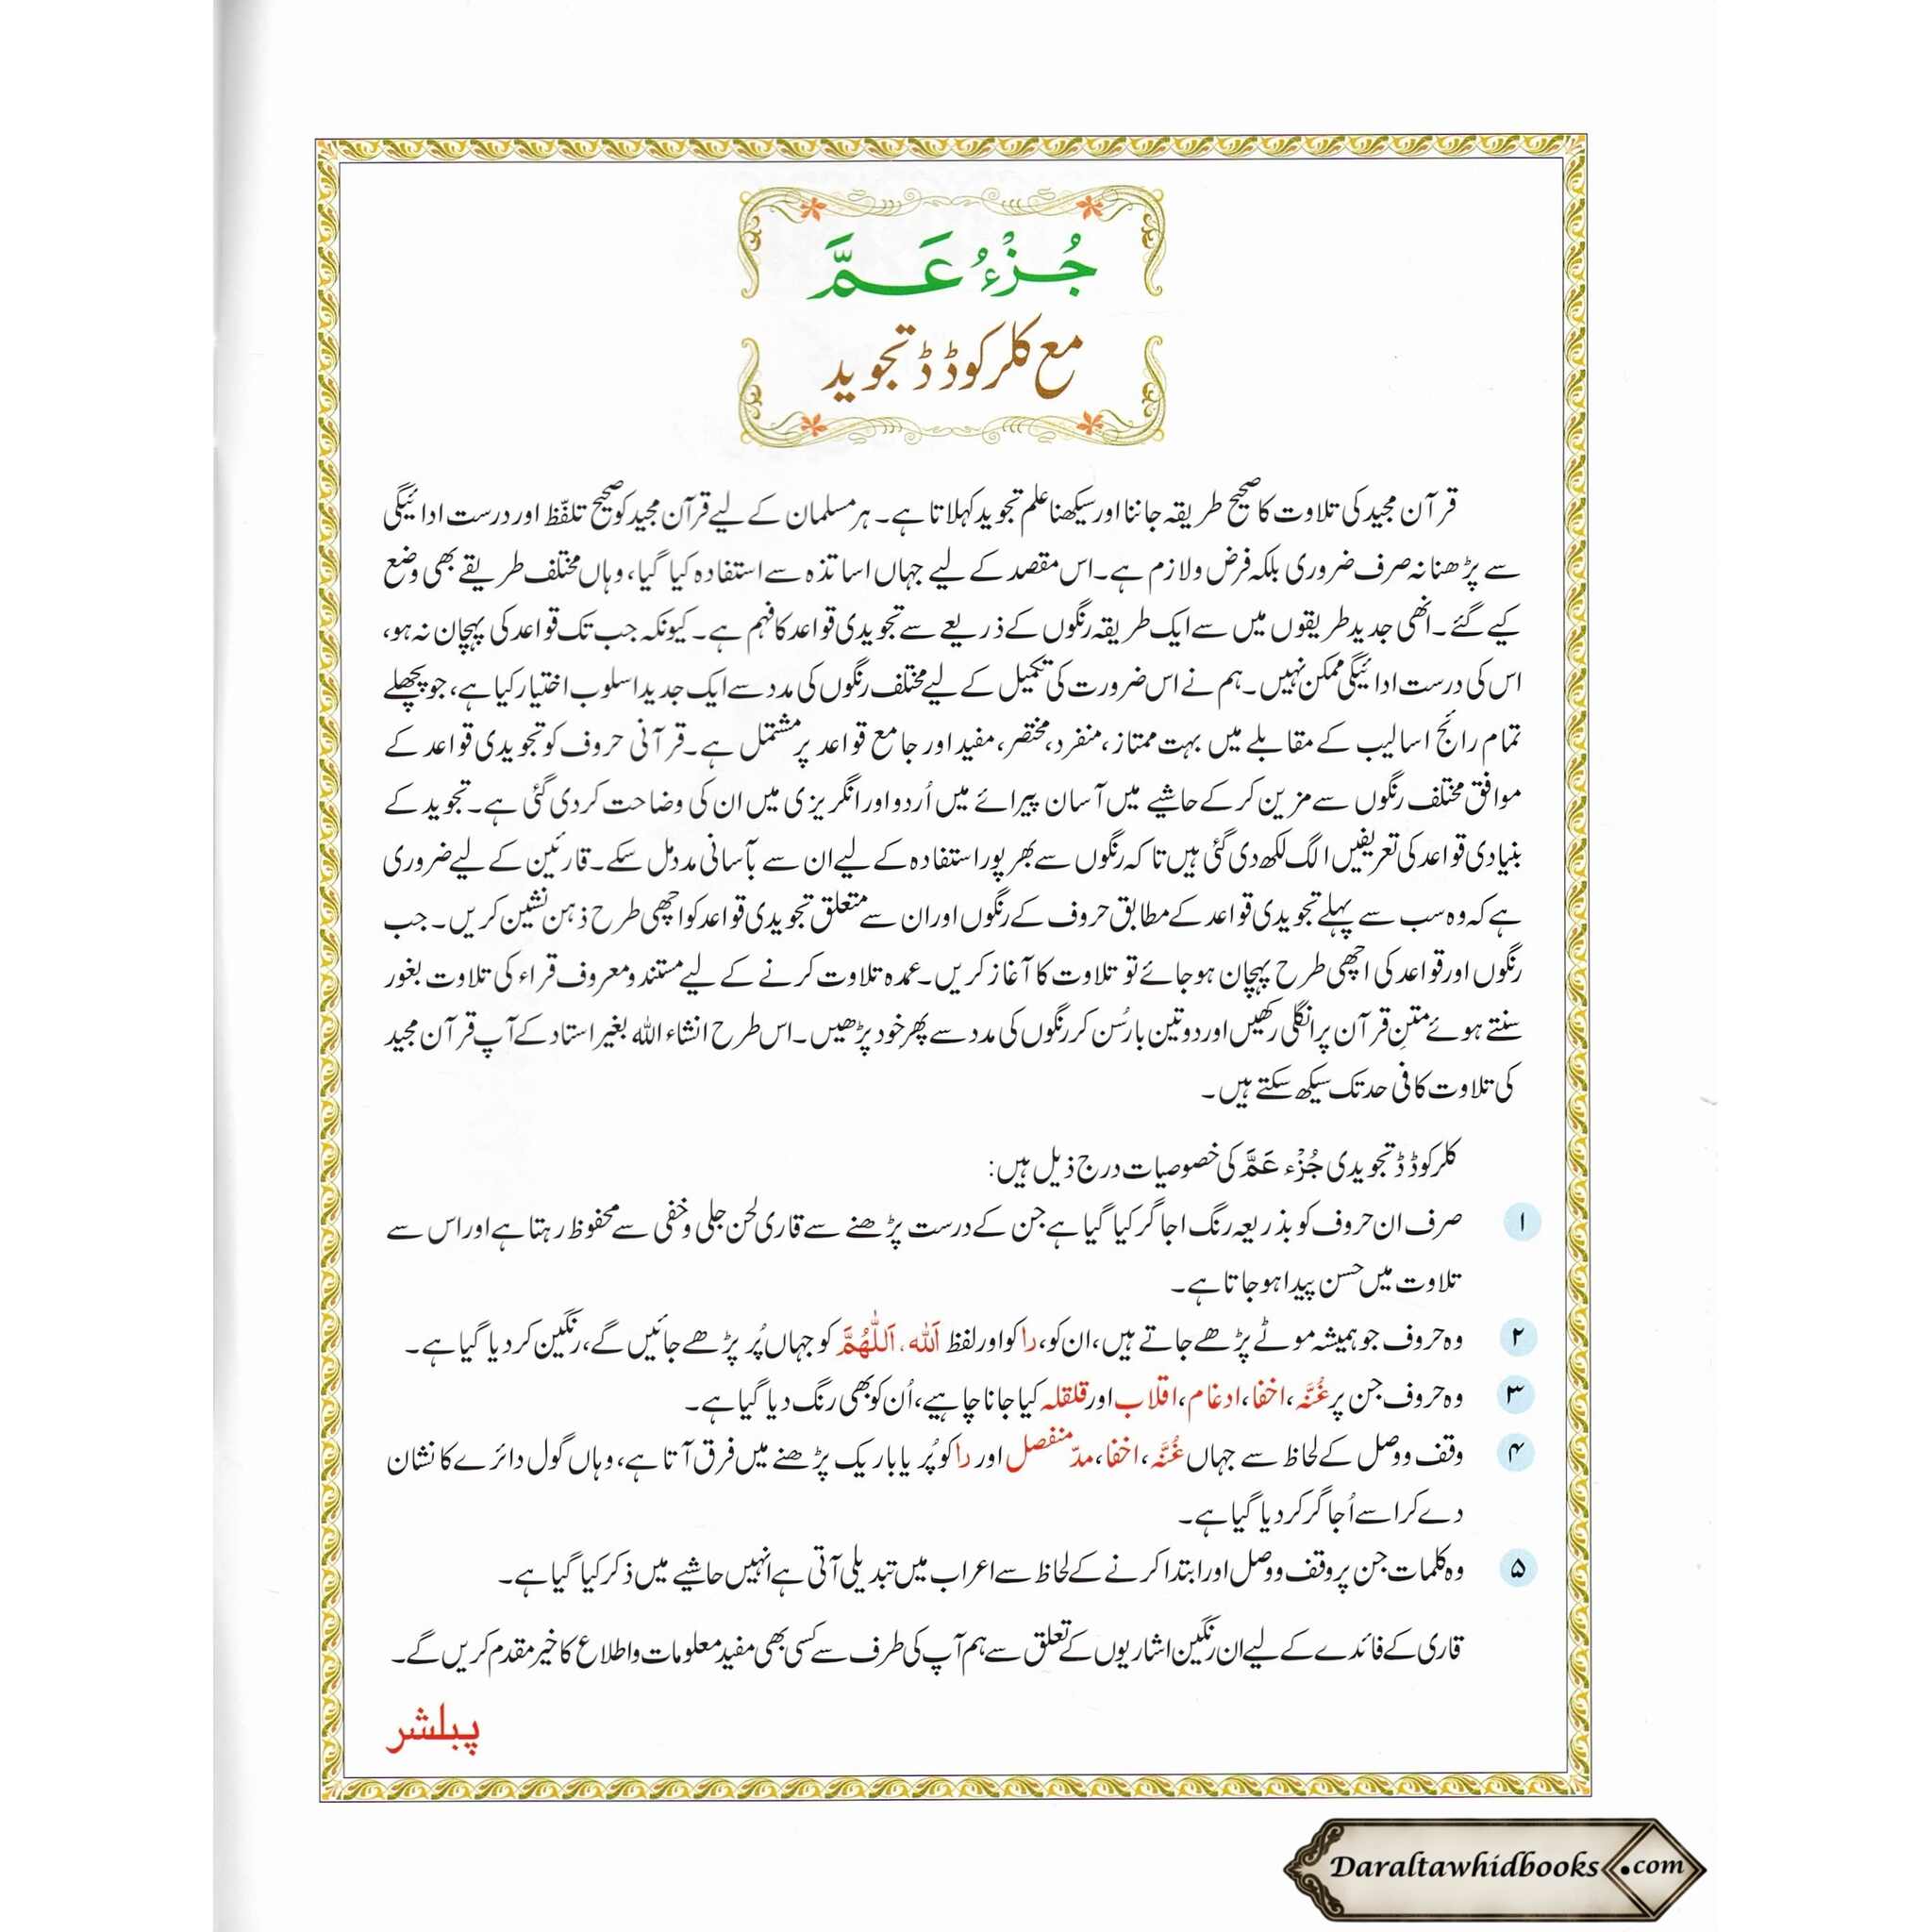 جُزْءُ عَمَّ
مع کلر کوڈڈ تجوید
قرآن مجید کی تلاوت کا صحیح طریقہ جاننا اور سیکھنا علم تجوید کہلاتا ہے۔ ہر مسلمان کے لیے قرآن مجید کو صحیح تلفّظ اور درست ادائیگی
سے پڑھنا نہ صرف ضروری بلکہ فرض ولازم ہے۔ اس مقصد کے لیے جہاں اساتذہ سے استفادہ کیا گیا، وہاں مختلف طریقے بھی وضع
کیے گئے۔ انھی جدید طریقوں میں سے ایک طریقہ رنگوں کے ذریعے سے تجویدی قواعد کا فہم ہے۔ کیونکہ جب تک قواعد کی پہچان نہ ہو،
اس کی درست ادائیگی ممکن نہیں۔ ہم نے اس ضرورت کی تکمیل کے لیے مختلف رنگوں کی مدد سے ایک جدید اسلوب اختیار کیا ہے، جو پچھلے
تمام رائج اسالیب کے مقابلے میں بہت ممتاز، منفرد، مختصر، مفید اور جامع قواعد پر مشتمل ہے۔ قرآنی حروف کو تجویدی قواعد کے
موافق مختلف رنگوں سے مزین کر کے حاشیے میں آسان پیرائے میں اُردو اور انگریزی میں ان کی وضاحت کردی گئی ہے۔ تجوید کے
بنیادی قواعد کی تعریفیں الگ لکھ دی گئی ہیں تا کہ رنگوں سے بھر پور استفادہ کے لیے ان سے بآسانی مدد مل سکے۔ قارئین کے لیے ضروری
ہے کہ وہ سب سے پہلے تجویدی قواعد کے مطابق حروف کے رنگوں اور ان سے متعلق تجویدی قواعد کو اچھی طرح ذہن نشین کریں۔ جب
رنگوں اور قواعد کی اچھی طرح پہچان ہوجائے تو تلاوت کا آغاز کریں۔ عمدہ تلاوت کرنے کے لیے مستند ومعروف قراء کی تلاوت بغور
سنتے ہوئے متنِ قرآن پر انگلی رکھیں اور دو تین بار سُن کر رنگوں کی مدد سے پھر خود پڑھیں۔ اس طرح انشاء اللہ بغیر استاد کے آپ قرآن مجید
کی تلاوت کافی حد تک سیکھ سکتے ہیں۔
کلر کوڈڈ تجویدی جُزْء عَمَّ کی خصوصیات درج ذیل ہیں:
۱ صرف ان حروف کو بذریعہ رنگ اجاگر کیا گیا ہے جن کے درست پڑھنے سے قاری لحن جلی و خفی سے محفوظ رہتا ہے اور اس سے
تلاوت میں حسن پیدا ہو جاتا ہے۔
۲ وہ حروف جو ہمیشہ موٹے پڑھے جاتے ہیں، ان کو، را کو اور لفظ اَللہ، اَللّٰهُمَّ کو جہاں پُر پڑھے جائیں گے، رنگین کر دیا گیا ہے۔
۳ وہ حروف جن پر غُنَّہ، اخفا، ادغام، اقلاب اور قلقلہ کیا جانا چاہیے، اُن کو بھی رنگ دیا گیا ہے۔
۴ وقف ووصل کے لحاظ سے جہاں غُنَّہ، اخفا، مدّ منفصل اور را کو پُر یا باریک پڑھنے میں فرق آتا ہے، وہاں گول دائرے کا نشان
دے کر اسے اُجاگر کر دیا گیا ہے۔
۵ وہ کلمات جن پر وقف ووصل اور ابتدا کرنے کے لحاظ سے اعراب میں تبدیلی آتی ہے انہیں حاشیے میں ذکر کیا گیا ہے۔
قاری کے فائدے کے لیے ان رنگین اشاریوں کے تعلق سے ہم آپ کی طرف سے کسی بھی مفید معلومات و اطلاع کا خیر مقدم کریں گے۔
پبلشر
Daraltawhidbooks.com